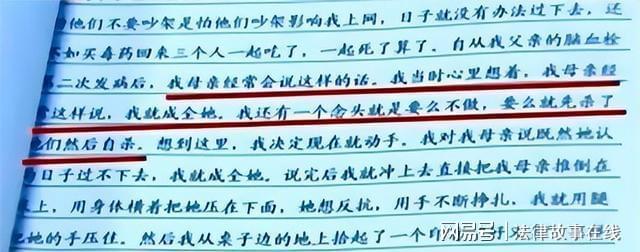 他们不要吵架是怕他们吵架影响我上网，日子就没有办法过下去，还
不如买毒药回来三个人一起吃了，一起死了算了。自从我父亲的脑血栓
第二次发病后，我母亲经常会说这样的话。我当时心里想着，我母亲经
常这样说，我就成全她。我还有一个念头就是要么不做，要么就先杀了
他们然后自杀。想到这里，我决定现在就动手。我对我母亲说既然她认
的日子过不下去，我就成全她。说完后我就冲上去直接把我母亲推倒在
上，用身体横着把她压在下面，她想反抗，用手不断挣扎，我就用腿
把她的手压住。然后我从桌子边的地上拾起了一个
网易号 | 法律故事在线